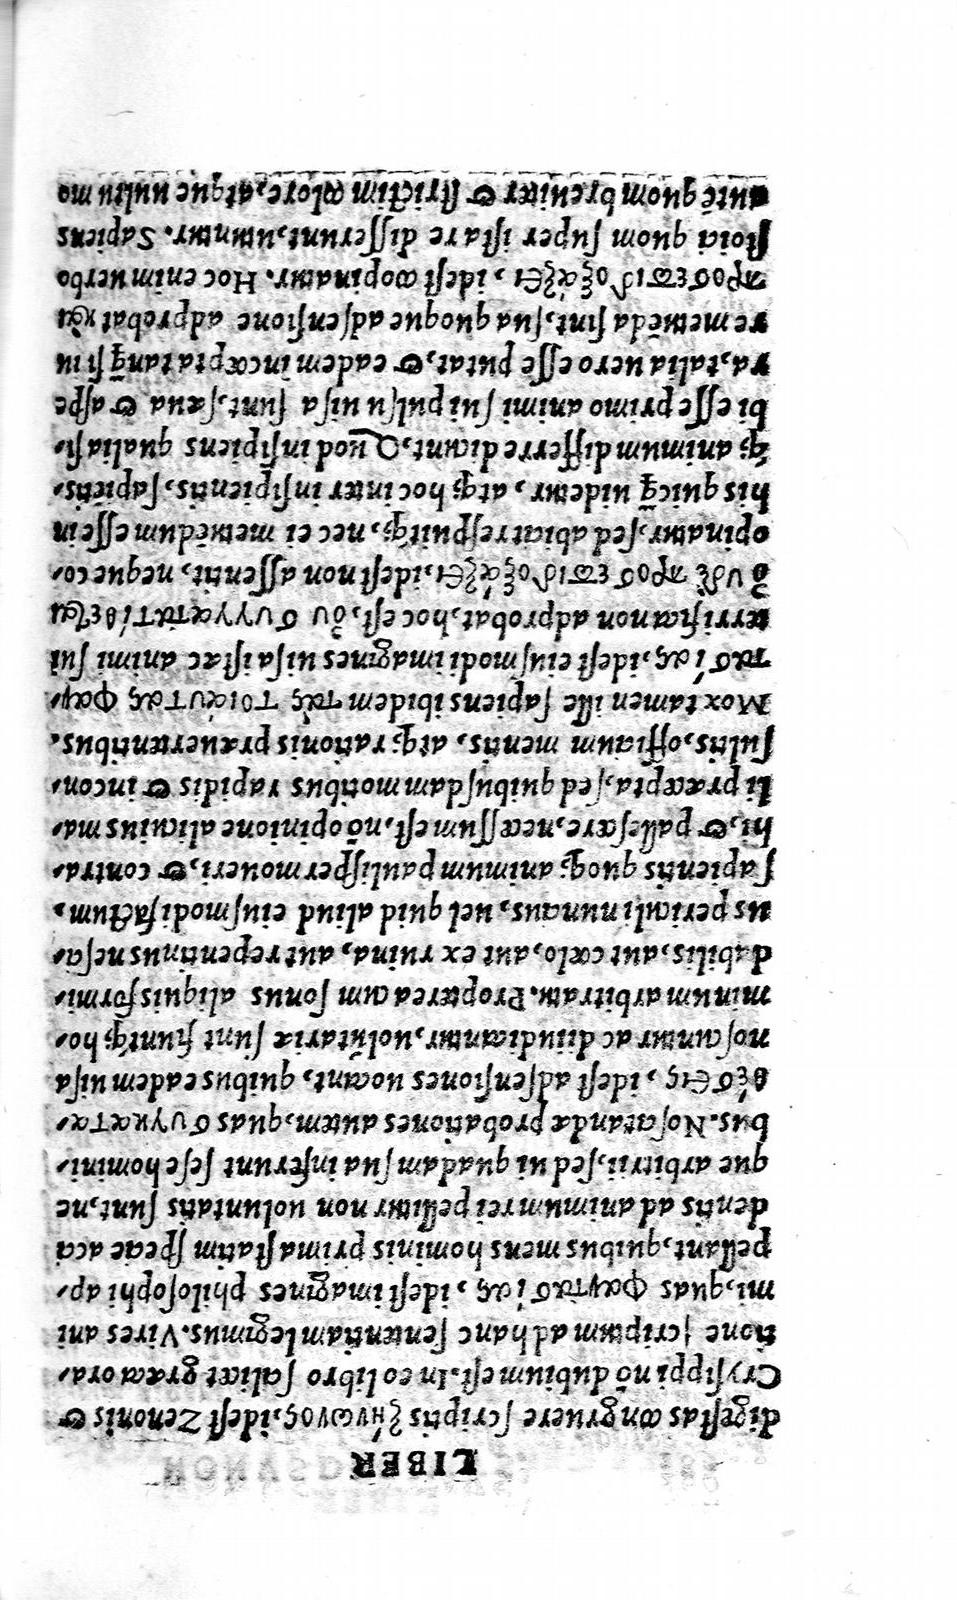 LIBER
digeſtas congruere ſcriptis ζήνωνος, ideſt Zenonis &
Cryſippi nō dubium eſt. In eo libro ſcalicet græca ora-
tione ſcriptam ad hanc ſententiam legimus. Vires ani
mi, quas φαντασίας, ideſt imagines philoſophi ap-
pellant, quibus mens hominis prima ſtatim ſpecie acci
dentis ad animum rei pellitur non uoluntatis ſunt, ne
que arbitrii, ſed ui quadam ſua inferunt ſeſe homini-
bus. Noſcitandæ probationes autem, quas συγκατα-
θέσεις, ideſt adſenſiones uocant, quibus eadem uiſa
noſcuntur ac diiudicantur, uolūtariæ ſunt fiūntq; ho-
minum arbitratu. Propterea cum ſonus aliquis formi-
dabilis, aut cœlo, aut ex ruina, aut repentinus neſci-
us periculi nuncius, uel quid aliud eiuſmodi factum,
ſapientis quoq; animum pauliſper moueri, & contra-
hi, & palleſcere, neceſſum eſt, nō opinione alicuius ma-
li præcepta, ſed quibuſdam motibus rapidis & incon-
ſultis, officium mentis, atq; rationis præuertentibus.
Mox tamen ille ſapiens ibidem τάς τοιάυτας φαν-
τασίας, ideſt eiuſmodi imagines uiſa iſtac animi ſui
terrifica non adprobat, hoc, eſt, ὀυ συγγατατίθεται
ὀυδὲ προσεπιδοξάζει, ideſt non aſſentit, neque co-
opinatur, ſed abicit reſpuitq;, nec ei metuēdum eſſe in
his quicq̄ uidetur, atq; hoc inter inſipientis, ſapiētis-
q; animum differre dicunt, Quod inſipiens qualia ſi-
bi eſſe primo animi ſui pulſu uiſa ſunt, ſæua & aſpe
ra, talia uero eſſe putat, & eadem incœpta tanq̄ ſi iu
re metuēda ſint, ſua quoque adſenſione adprobat καὶ
προσεπιδοξάζει, ideſt coopinatur. Hoc enim uerbo
ſtoici quom ſuper iſta re diſſerunt, utuntur. Sapiens
autē quom breuiter & ſtrictim colore, atque uultu mo